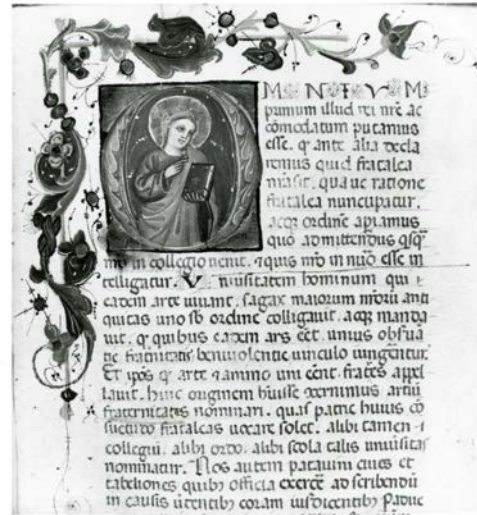 O MNIUM
primum illud rei nr̄e ac
cōmodatum putamus
esse. qͥ ante alia decla
remus quid fratalea
ma sit. qua uc ratione
fratalea nuncupatur.
acq; ordinē apiamus
quō admittendus qſq̄
nr̄o in collegio uenit. ⁊ quis nr̄o in nuō esse in
telligatur. Vniuisitatem hominum qui
eadem arte uiuant. sagax maiorum nr̄orū anti
quitas uno sb ordine colligauit. acq; manda
uit. qͥ quibus eadem ars eēt. unius obſua
tie fr̄aīnitatis beniuolentie uinculo iungentur.
Et ip̄os qͥ arte ⁊ animo uni eēnt. frat̄es appel
lauit. hinc originem h̄uisse cernimus artiū
fraternitatis nominari. quas patrie huius cō
suetudo frataleas uocare solet. alibi tamen
collegiū. alibi ordo. alibi scola talis uniuisitas
nominatur. Nos autem patauini ciues et
tabeliones quibꝫ officia exercē ad scribendū
in causis utentibꝫ coram iusdicentibꝫ Padue